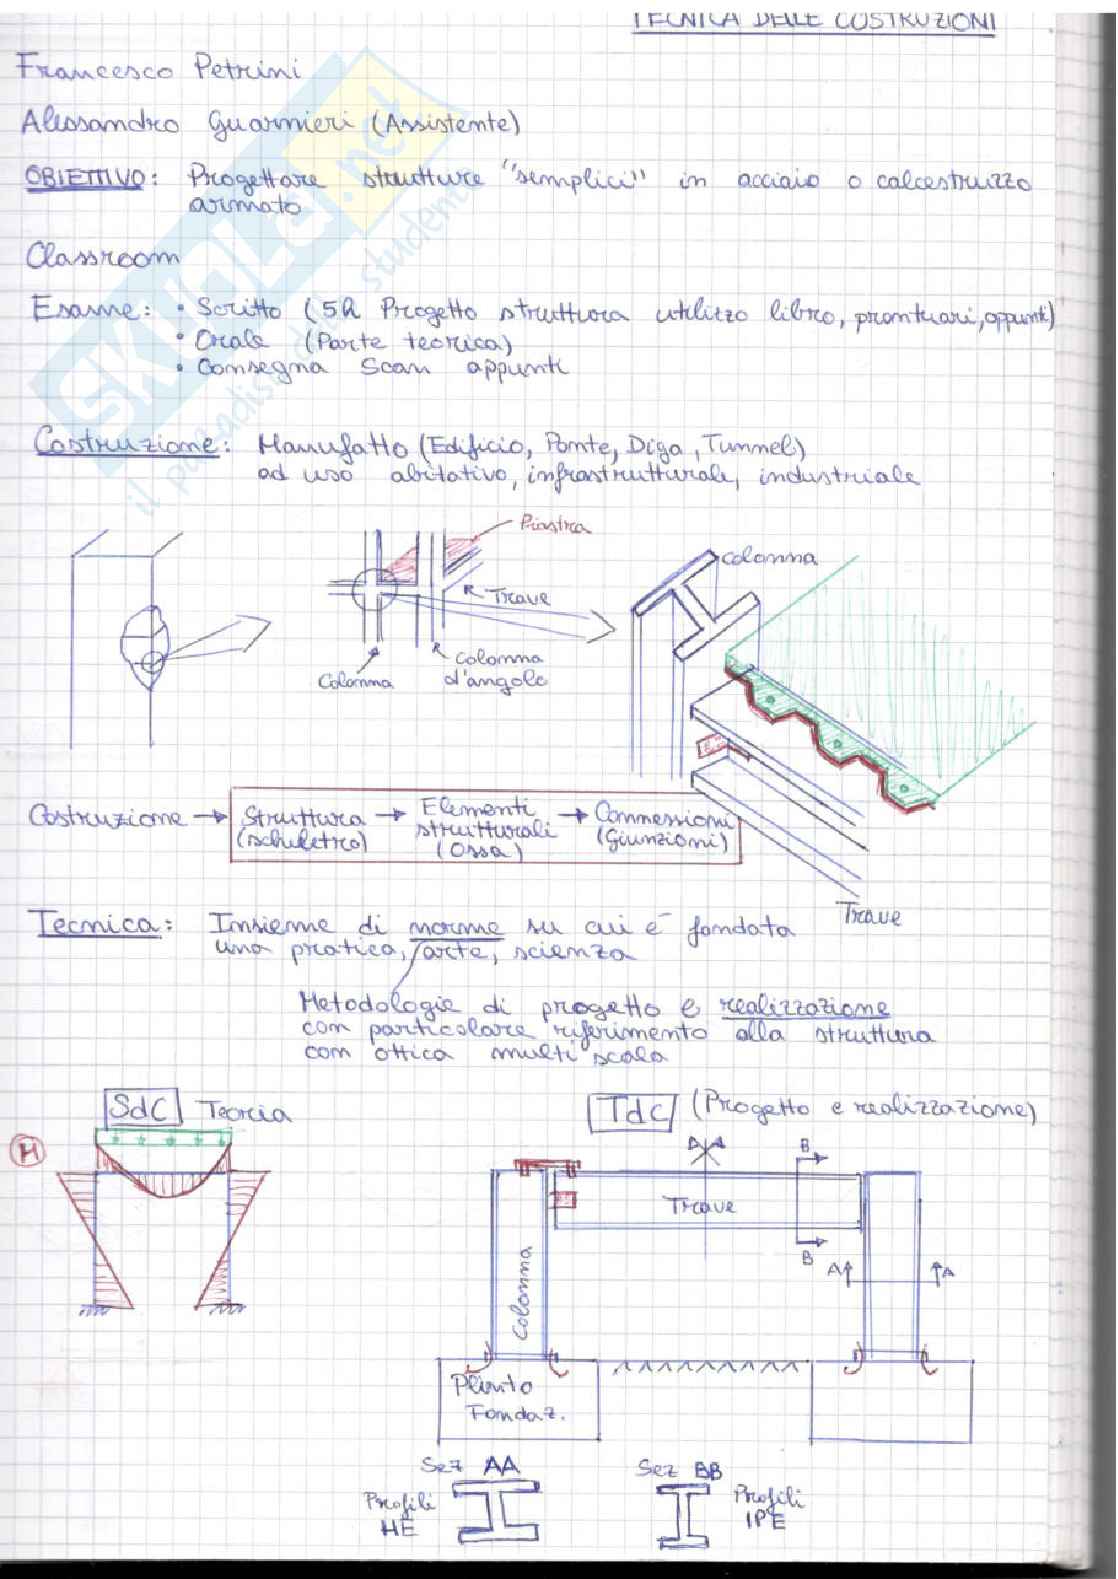 TECNICA DELLE COSTRUZIONI
Francesco Petrini
Alessandro Guarnieri (Assistente)
OBIETTIVO: Progettare strutture "semplici" in acciaio o calcestruzzo
armato
Classroom
Esame: • Scritto (5h Progetto struttura utilizzo libro, prontuari, appunti)
• Orale (Parte teorica)
• Consegna Scan appunti
Costruzione: Manufatto (Edificio, Ponte, Diga, Tunnel)
ad uso abitativo, infrastrutturale, industriale
Piastra
Trave
Colonna
Colonna
d'angolo
Colonna
Costruzione → Struttura → Elementi → Connessioni
(scheletro) strutturali (Giunzioni)
(Ossa)
Trave
Tecnica: Insieme di norme su cui è fondata
una pratica, arte, scienza
Metodologie di progetto e realizzazione
con particolare riferimento alla struttura
con ottica multi scala
SdC Teoria
TdC (Progetto e realizzazione)
M
B
Trave
B
A A
Colonna
Plinto
Fondaz.
Sez AA
Profili
HE
Sez BB
Profili
IPE
SKUOLA.net
il paradiso dello studente